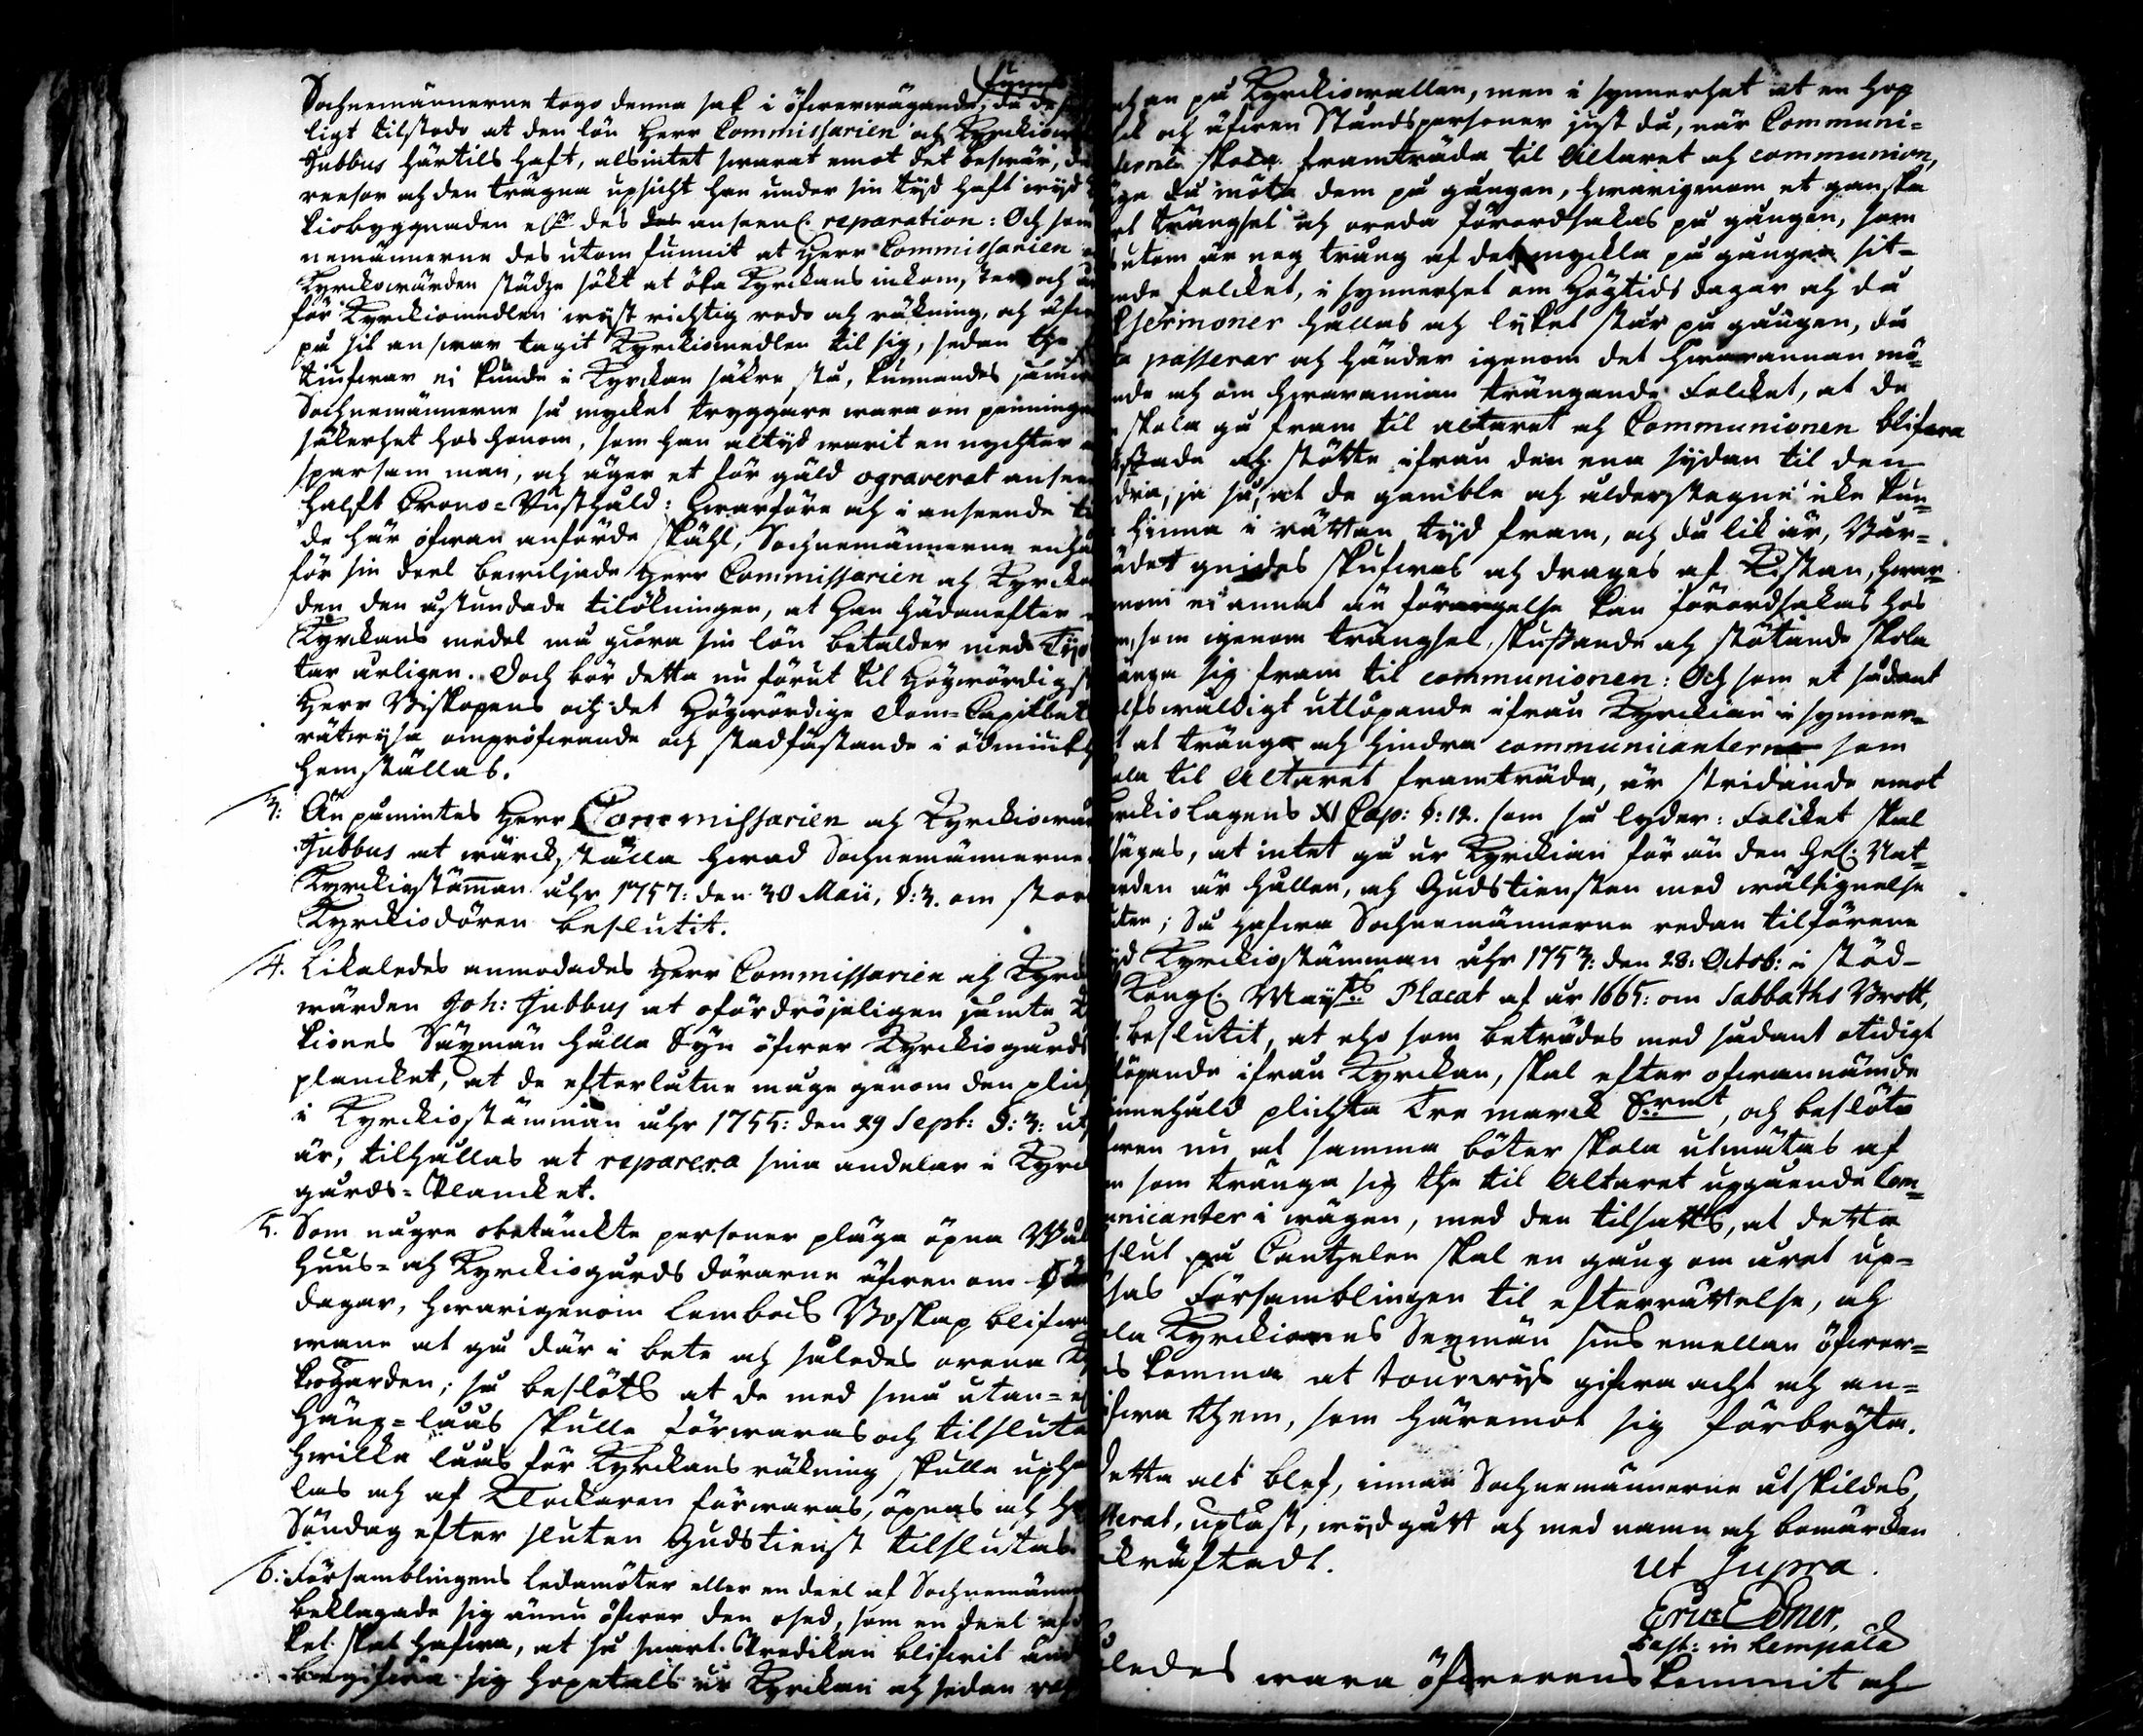 Sochnemännerne togo denna sak i öfwerwägande, då de
ligt tilstodo at den lön Herr Commissarien och Kyrckiow
Jubbus härtils haft, alsintet swarat emot det beswär, de
resor och den trägna upsicht han under sin tijd haft wijd
kiobyggnaden och des anseenl. reparation: Och som
nemännerne des utom funnit at Herr Commissarien
Kyrckowärden städze sökt at öka Kyrckans inkomster och
för Kyrckiomedlen wist richtig redo och räkning, och äfwen
på sit answar tagit Kyrckiomedlen til sig, sedan the
tiufwar ej kunde i Kyrckan säkre stå, kunnandes
Sochnemännerne så mycket tryggare wara om penninga
säkerhet hos honom, som han altijd warit en nychter
sparsam man, och äger et för gäld ograverat
halft Crono-Rusthåld: hwarföre och i anseende
de här ofwan anförde skähl, Sochnemännerne
för sin deel bewiljade Herr Commissarien och Kyrcko
den den åstundade tilökningen, at han hädanefter
Kyrckans medel må giöra sin lön betalder med Tijo
lar årligen. Dock bör detta nu förut til Högwördigst
Herr Biskopens och det Högwördige Dom-Capitlet
rätwijsa ompröfwande och stadfästande i ödmiukh
hemställas.
3: Än påmintes Herr Commissarien och Kyrckiowär
Jubbus at wärckställa hwad Sochnemännerne
Kyrckiostämman åhr 1757: den 30 Maii, §: 3. om stor
Kyrckiodören beslutit.
4. Likaledes anmodades Herr Commissarien och Kyrck
wärden Joh: Jubbus at ofördröjeligen jämte
kiones Säxmän hålla Syn öfwer Kyrckiogårds
plancket, at de efterlåtne måge genom den plich
i Kyrckiostämman åhr 1755: den 29 Sept: §: 3: ut
är, tilhållas at reparera sina andelar i Kyrck
gårds-Plancket.
5. Som någre obetänckte personer pläga öpna
huus- och Kyrckiogårds dörarne äfwen om
dagar, hwarigenom Lembois Boskap blifwa
wane at gå där i bete och således orena
kiogården; så beslöts at de med små utan-
häng-låås skulle förwaras och tilsluta
hwilka låås för Kyrckans räkning skulle uph
las och af Klockaren förwaras, öpnas och
Söndag efter sluten Gudstienst tilslutas.
6. Församblingens ledamöter eller en deel af Sochnemänne
beklagade sig ännu öfwer den osed, som en deel af
ket skal hafwa, at så snart Predikan blifwit
begifwa sig hopetals ur Kyrckan och sedan
an på Kyrckiowallen, men i synnerhet at en hop
och äfwen Ståndspersoner just då, når Communi-
skola framträda til Altaret och communion,
då möta dem på gången, hwarigenom et ganska
trängsel och oreda förordsakas på gången, som
utom är nog trång af det myckla på gången sit-
ande folcket, i synnerhet om Högtids dagar och då
sermoner hållas och lijket står på gången, då
passerar och händer igenom det hwarannan mö-
nde och om hwarannan trängande Folcket, at de
skola gå fram til altaret och Communionen blifwa
stade och stötte ifrån den ena sijdan til den
dra, ja så, at de gamble och ålderstegne icke kun-
hinna i rättan tijd fram, och då lik är, Bår-
ädet gnides skufwas och drages af Kistan, hwar-
moni ej annat än förargelse kan förordsakas hos
m, som igenom trängsel, skuffande och stötande skola
änga sig fram til communionen: Och som et sådant
elfswåldigt utlöpande ifrån Kyrckian i synner-
t at tränga och hindra communicanterna som
ola til Altaret framträda, är stridande emot
rckiolagens XI Cap: §: 12. som så lyder: Folcket skal
säyas, at intet gå ur Kyrckian för än den hel. Nat-
arden är hållen, och Gudstiensten med wälsignelse
uten; Så hafwa Sochnemännerne redan tilförene
id Kyrckiostämman åhr 1753: den 28: Octob: i stöd
Kongl. Maij:ts Placat af år 1665: om Sabbaths Brott,
beslutit, at eho som beträdes med sådant otidigt
löpande ifrån Kyrckan, skal efter ofwannämde
innehåld plichta Tre marck S:rmt, och beslöts
wen nu at samma böter skola utmätas af
m som tränga sig the til Altaret upgående Com-
unicanter i wägen, med den tilsatts, at detta
slut på Cantzelen skal en gång om året up-
sas Församblingen til efterrättelse, och
ola Kyrckiones Sexmän sins emellan öfwer-
s komma at tourwijs gifwa acht och an-
gifwa them, som häremot sig förbryta.
Detta alt blef, innan Sochnemännerne utskildes,
terat, upläst, wijdgått och med namn och bomärcken
kräftadt.
ut supra.
Eric Ebner,
Past: in Lempälä
ledes wara öfwerenskommit och